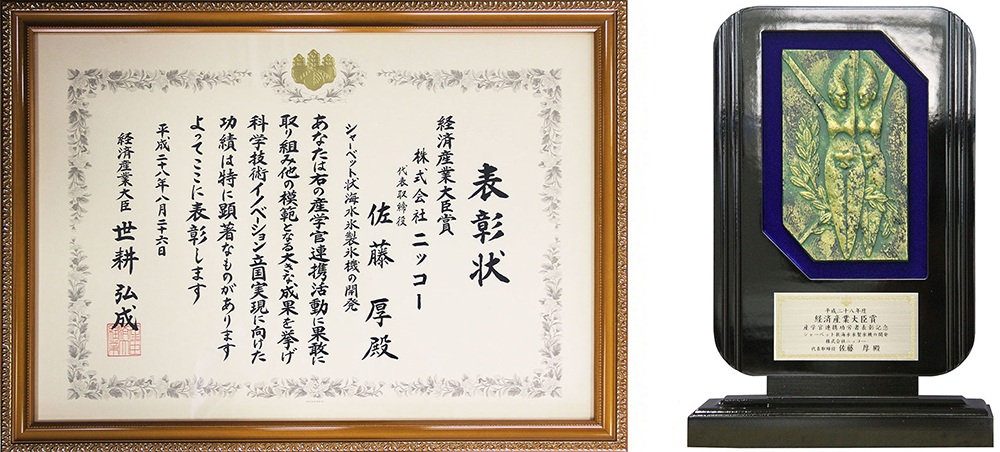 表彰状
経済産業大臣賞
株式会社ニッコー
代表取締役
佐藤 厚殿
シャーベット状海水氷製氷機の開発
あなたは右の産学官連携活動に果敢に
取り組み他の模範となる大きな成果を挙げ
科学技術イノベーション立国実現に向けた
功績は特に顕著なものがあります
よってここに表彰します
平成二十八年八月二十六日
経済産業大臣 世耕弘成
平成二十八年度
経済産業大臣賞
産学官連携功労者表彰記念
シャーベット状海水氷製氷機の開発
株式会社ニッコー
代表取締役 佐藤 厚 殿